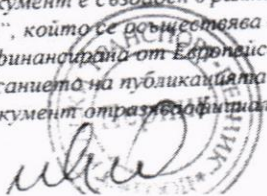 кумент е създаден в рамк
", който се осъществява
финансирана от Европейс
санието на публикацията
кумент отразява официал